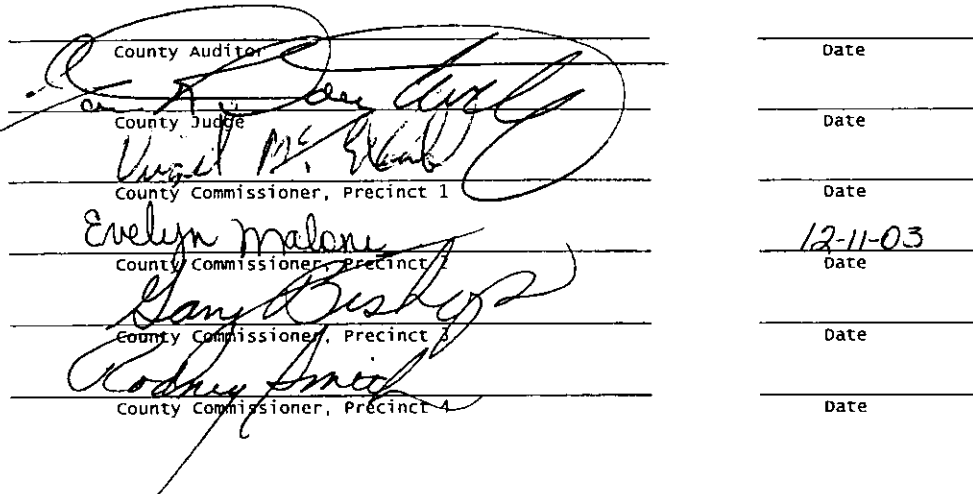 County Auditor Date
County Judge Date
County Commissioner, Precinct 1 Date
Evelyn Malone 12-11-03
County Commissioner, Precinct 2 Date
Gary Bishop
County Commissioner, Precinct 3 Date
Rodney Smith
County Commissioner, Precinct 4 Date